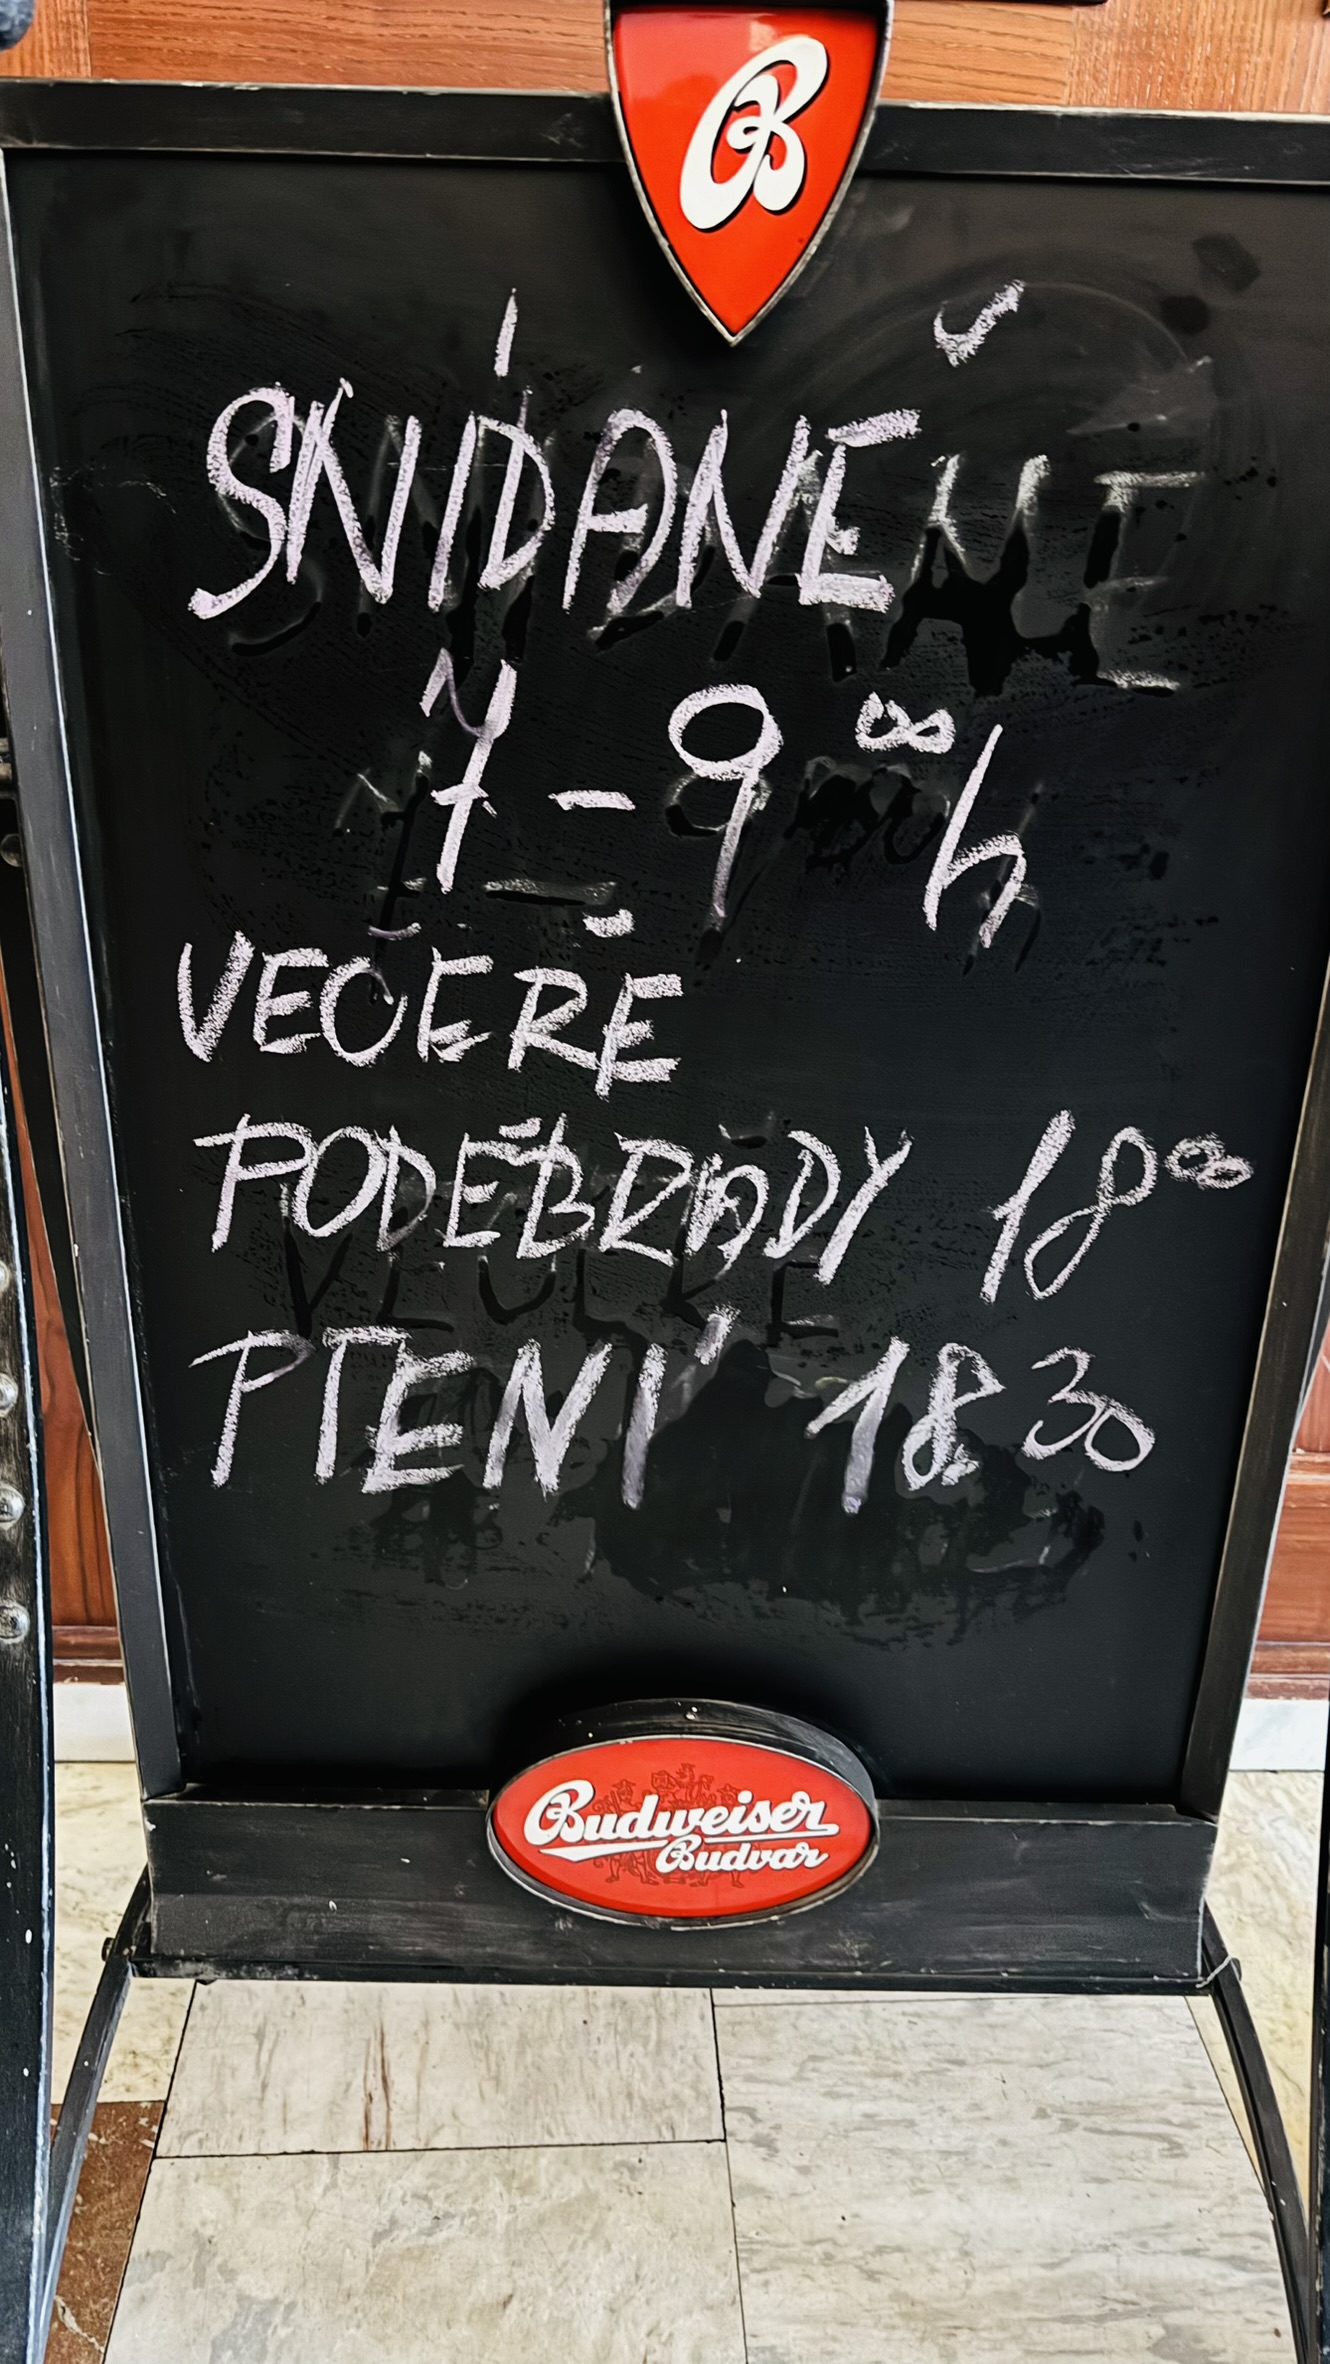 B
SNÍDANĚ
7 - 9 00 h
VEČEŘE
PODĚBRADY 18 00
PTENÍ 18.30
Budweiser
Budvar